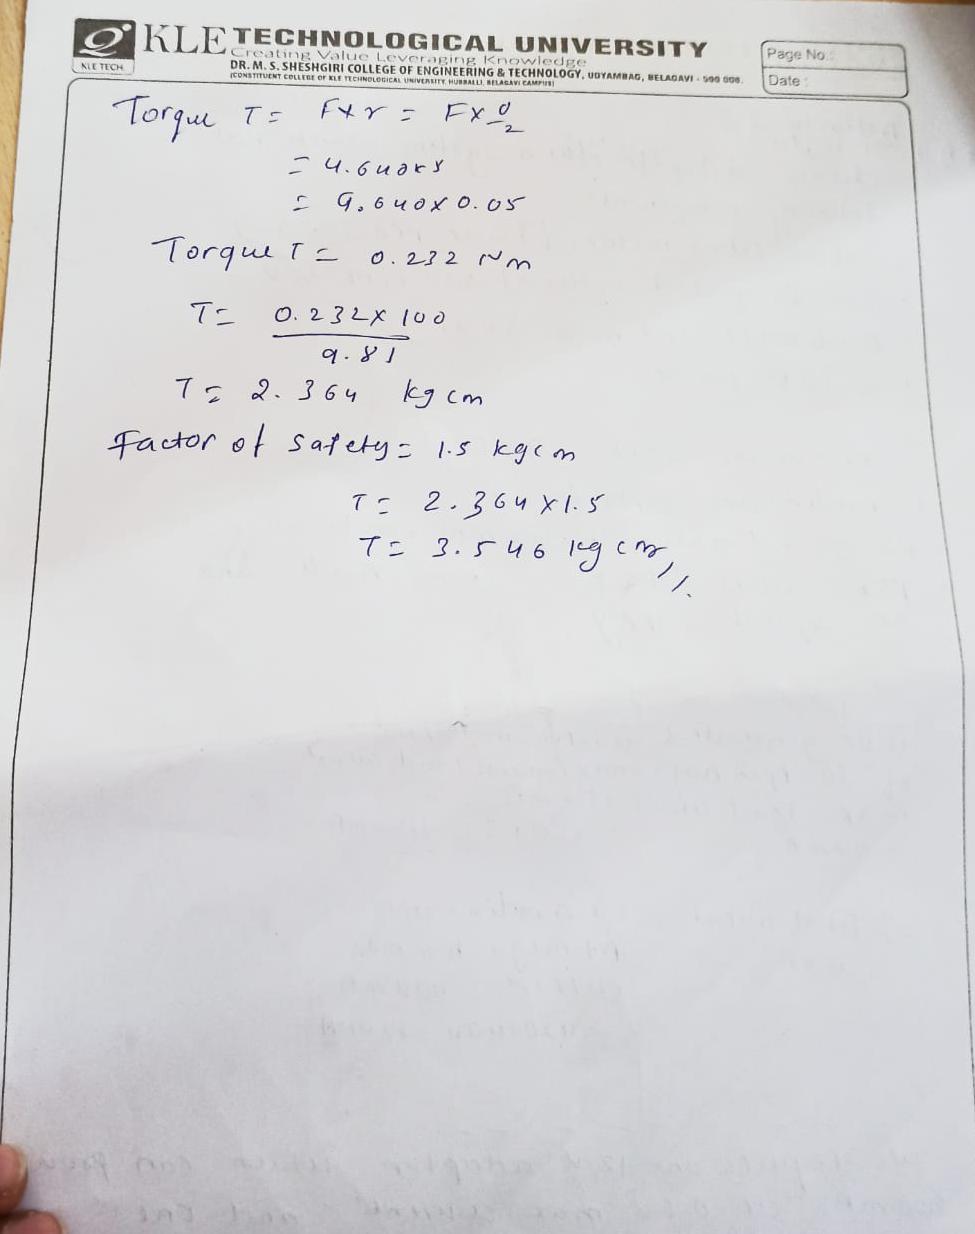 KLE TECHNOLOGICAL UNIVERSITY
Creating Value Leveraging Knowledge
KLE TECH
DR. M. S. SHESHGIRI COLLEGE OF ENGINEERING & TECHNOLOGY, UDYAMBAG, BELAGAVI - 590 008.
(CONSTITUENT COLLEGE OF KLE TECHNOLOGICAL UNIVERSITY, HUBBALLI, BELAGAVI CAMPUS)
Page No.:
Date :
Torque T = F×r = F×d/2
= 4.640×r
= 4.640×0.05
Torque T = 0.232 Nm
T = 0.232×100
9.81
T = 2.364 kg cm
Factor of safety = 1.5 kgcm
T = 2.364×1.5
T = 3.546 kg cm//.